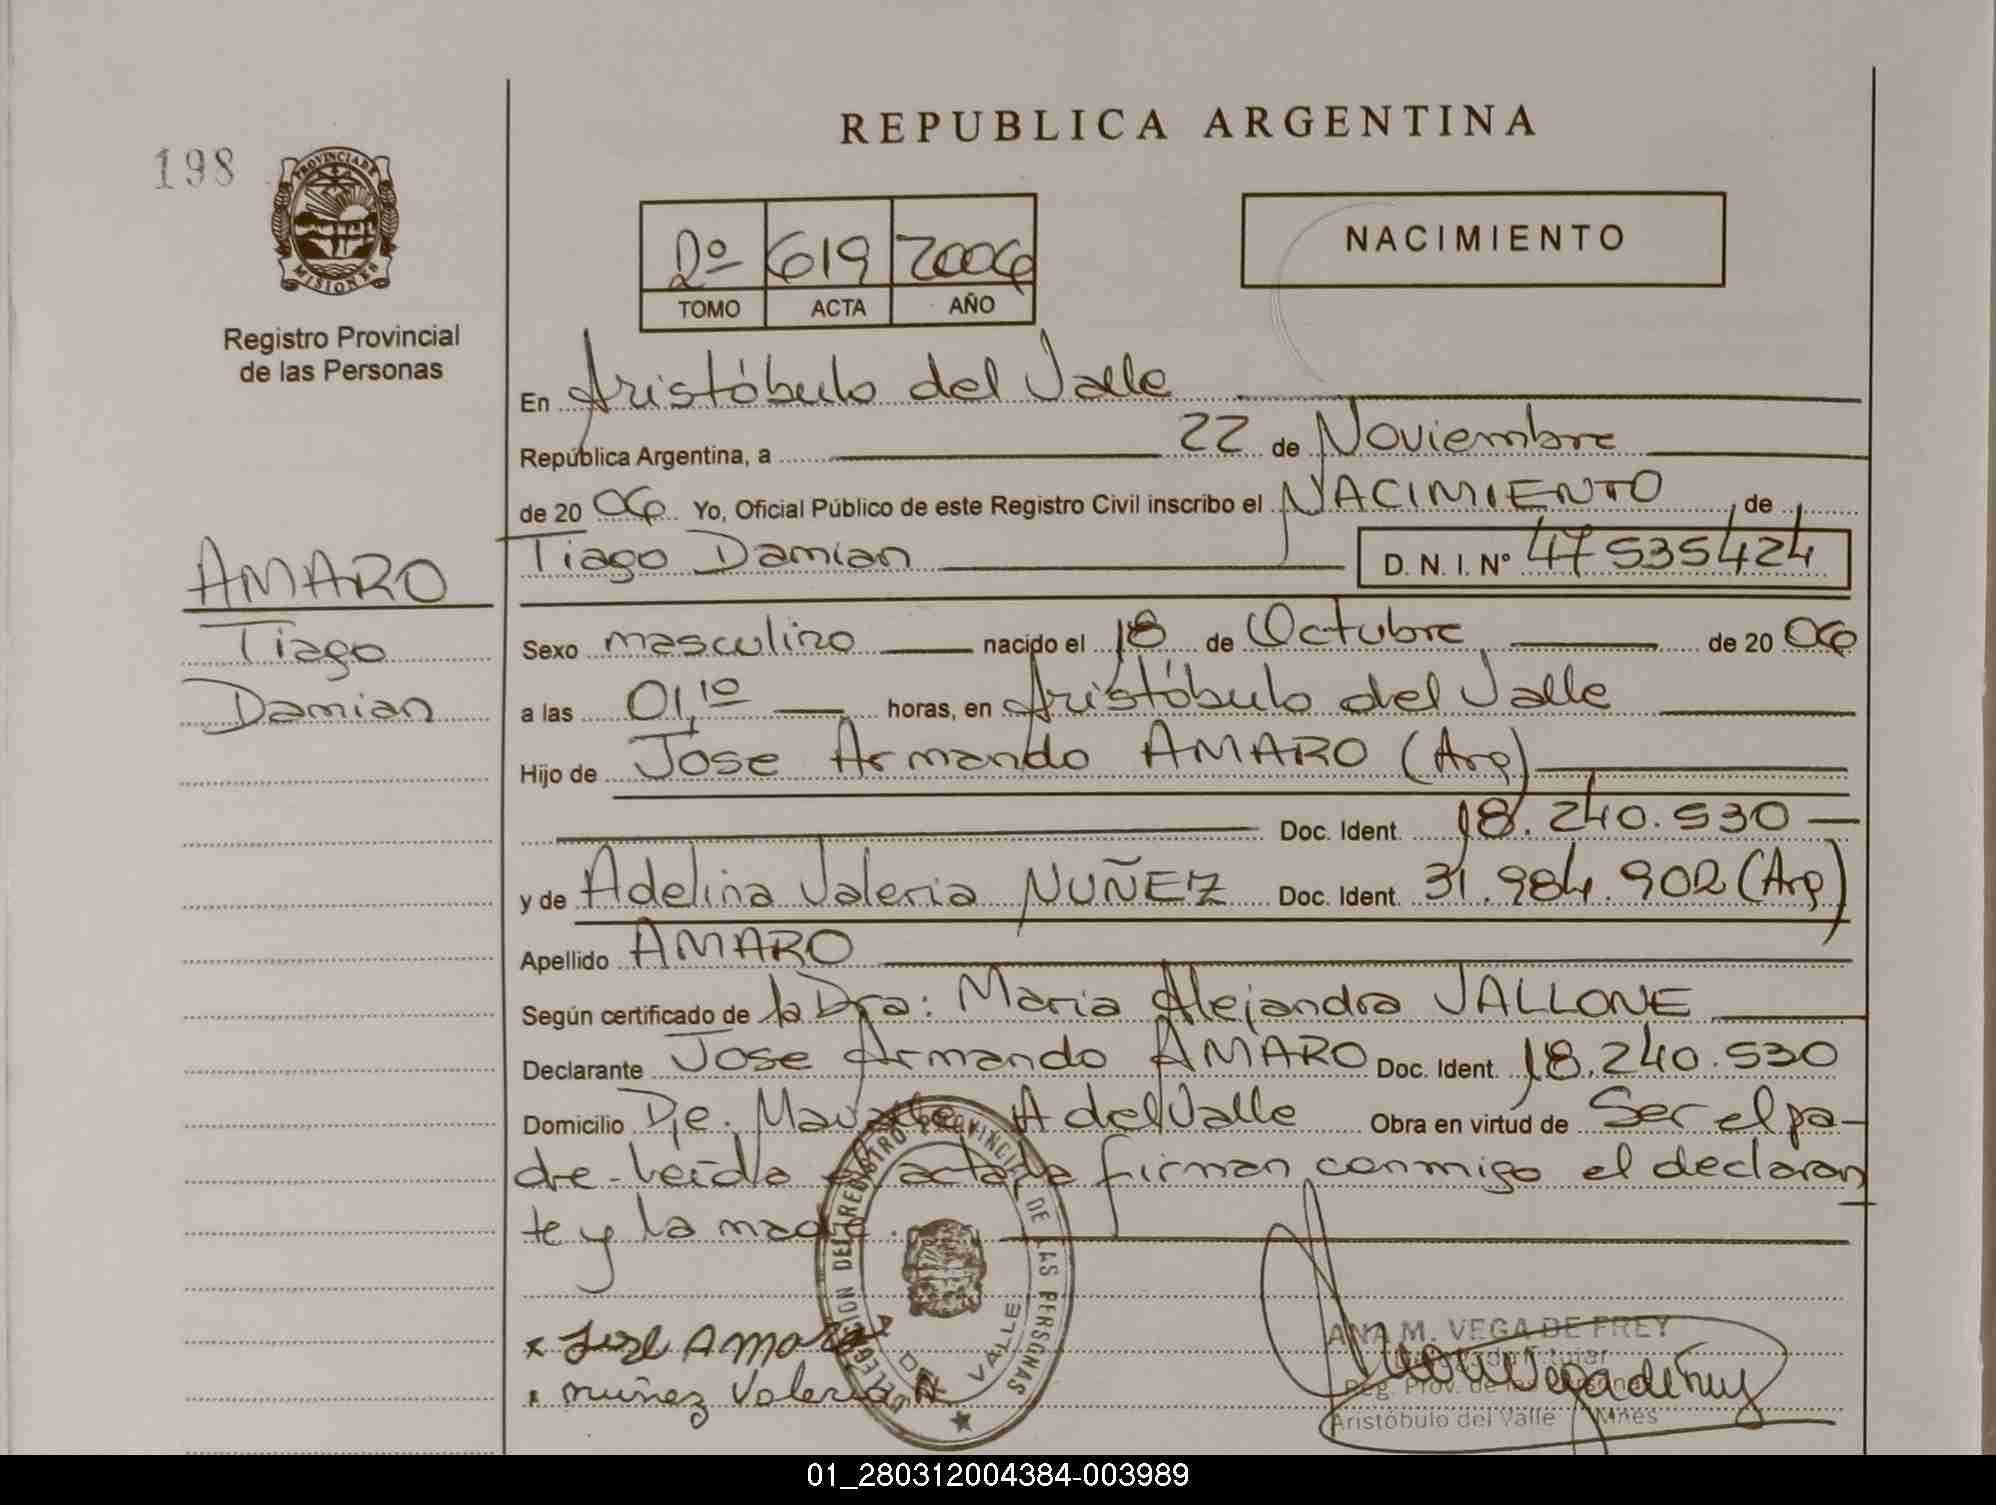 REPUBLICA ARGENTINA
198
PROVINCIA DE
MISIONES
Registro Provincial
de las Personas
2º 619 2006
TOMO ACTA AÑO
NACIMIENTO
En Aristóbulo del Valle
República Argentina, a 22 de Noviembre
de 20 06 Yo, Oficial Público de este Registro Civil inscribo el NACIMIENTO, de
Tiago Damian D. N. I. Nº 47535424
AMARO
Tiago
Damian
Sexo masculino nacido el 18 de Octubre de 20 06
a las 01,10 horas, en Aristóbulo del Valle
Hijo de Jose Armando AMARO (Arg)
Doc. Ident. 18.240.530
y de Adelina Valeria NUÑEZ Doc. Ident. 31.984.902 (Arg)
Apellido AMARO
Según certificado de la Dra: Maria Alejandra VALLONE
Declarante Jose Armando AMARO Doc. Ident. 18.240.530
Domicilio A del Valle Obra en virtud de Ser el pa-
dre-leída el acta firman conmigo el declaran
te y la madre.
DELEGACION DEL REGISTRO PROVINCIAL DE LAS PERSONAS
DEL VALLE
x José Amaro
x nuñez Valeria A
ANA M. VEGA DE FREY
Delegada Titular
Reg. Prov. de las Personas
Aristóbulo del Valle Mnes
01_280312004384-003989